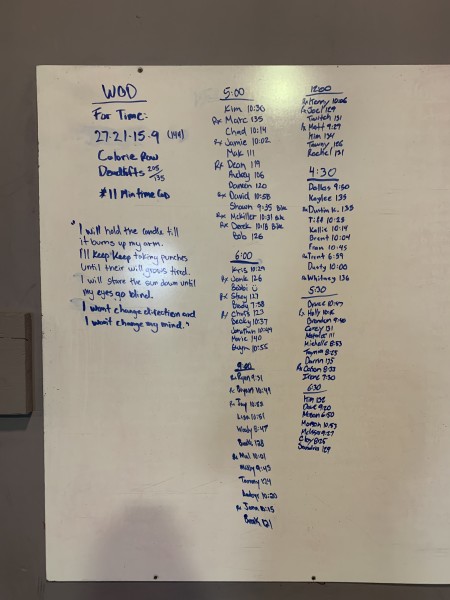 WOD
For Time:
27-21-15-9 (144)
Calorie Row
Deadlifts 205/135
*11 Min time Cap
"I will hold the candle till
it burns up my arm.
I'll Keep Keep taking punches
until their will grows tired.
I will stare the sun down until
my eyes go blind.
I won't change direction and
I won't change my mind."
5:00
Kim 10:30
Rx Marc 135
Chad 10:14
Rx Jamie 10:02
Mak 111
Rx Dean 119
Audrey 106
Damon 120
Rx David 10:58
Shawn 9:35 Bike
Rx McKiller 10:31 Bike
Rx Derek 10:18 Bike
Bob 126
6:00
Kris 10:29
Rx 126
Bobbi
Rx Shay 123
Brady 7:58
Rx Chris 123
Becky 10:37
Jonathan 10:49
Marie 140
10:55
9:00
Rx Ryan 9:31
Rx Bryan 10:49
Rx Tay 10:53
Lisa 10:51
Wally 8:47
128
Rx Mal 10:01
Milly 9:43
Tammy 124
10:20
Rx Jame 8:15
121
12:00
Rx Kenny 10:06
Rx Joel 129
Twitch 131
Rx Matt 9:29
Kim 134
Tawny 126
Rachel 131
4:30
Dallas 9:50
Kaylee 135
Rx Dustin K. 135
Tiff 10:23
Kallie 10:14
Brent 10:04
Fran 10:45
Rx Trent 6:59
Darty 10:00
Rx Whitney 136
5:30
Rx Holly
Brandon 9:40
Corey 131
Natalie 111
Michelle 8:53
Taynia 8:25
Darrin 135
Rx Colton 8:33
Irene 7:30
6:30
Kim 132
Dave 9:20
6:50
10:53
Melissa 9:27
Clay 8:25
Sandra 129